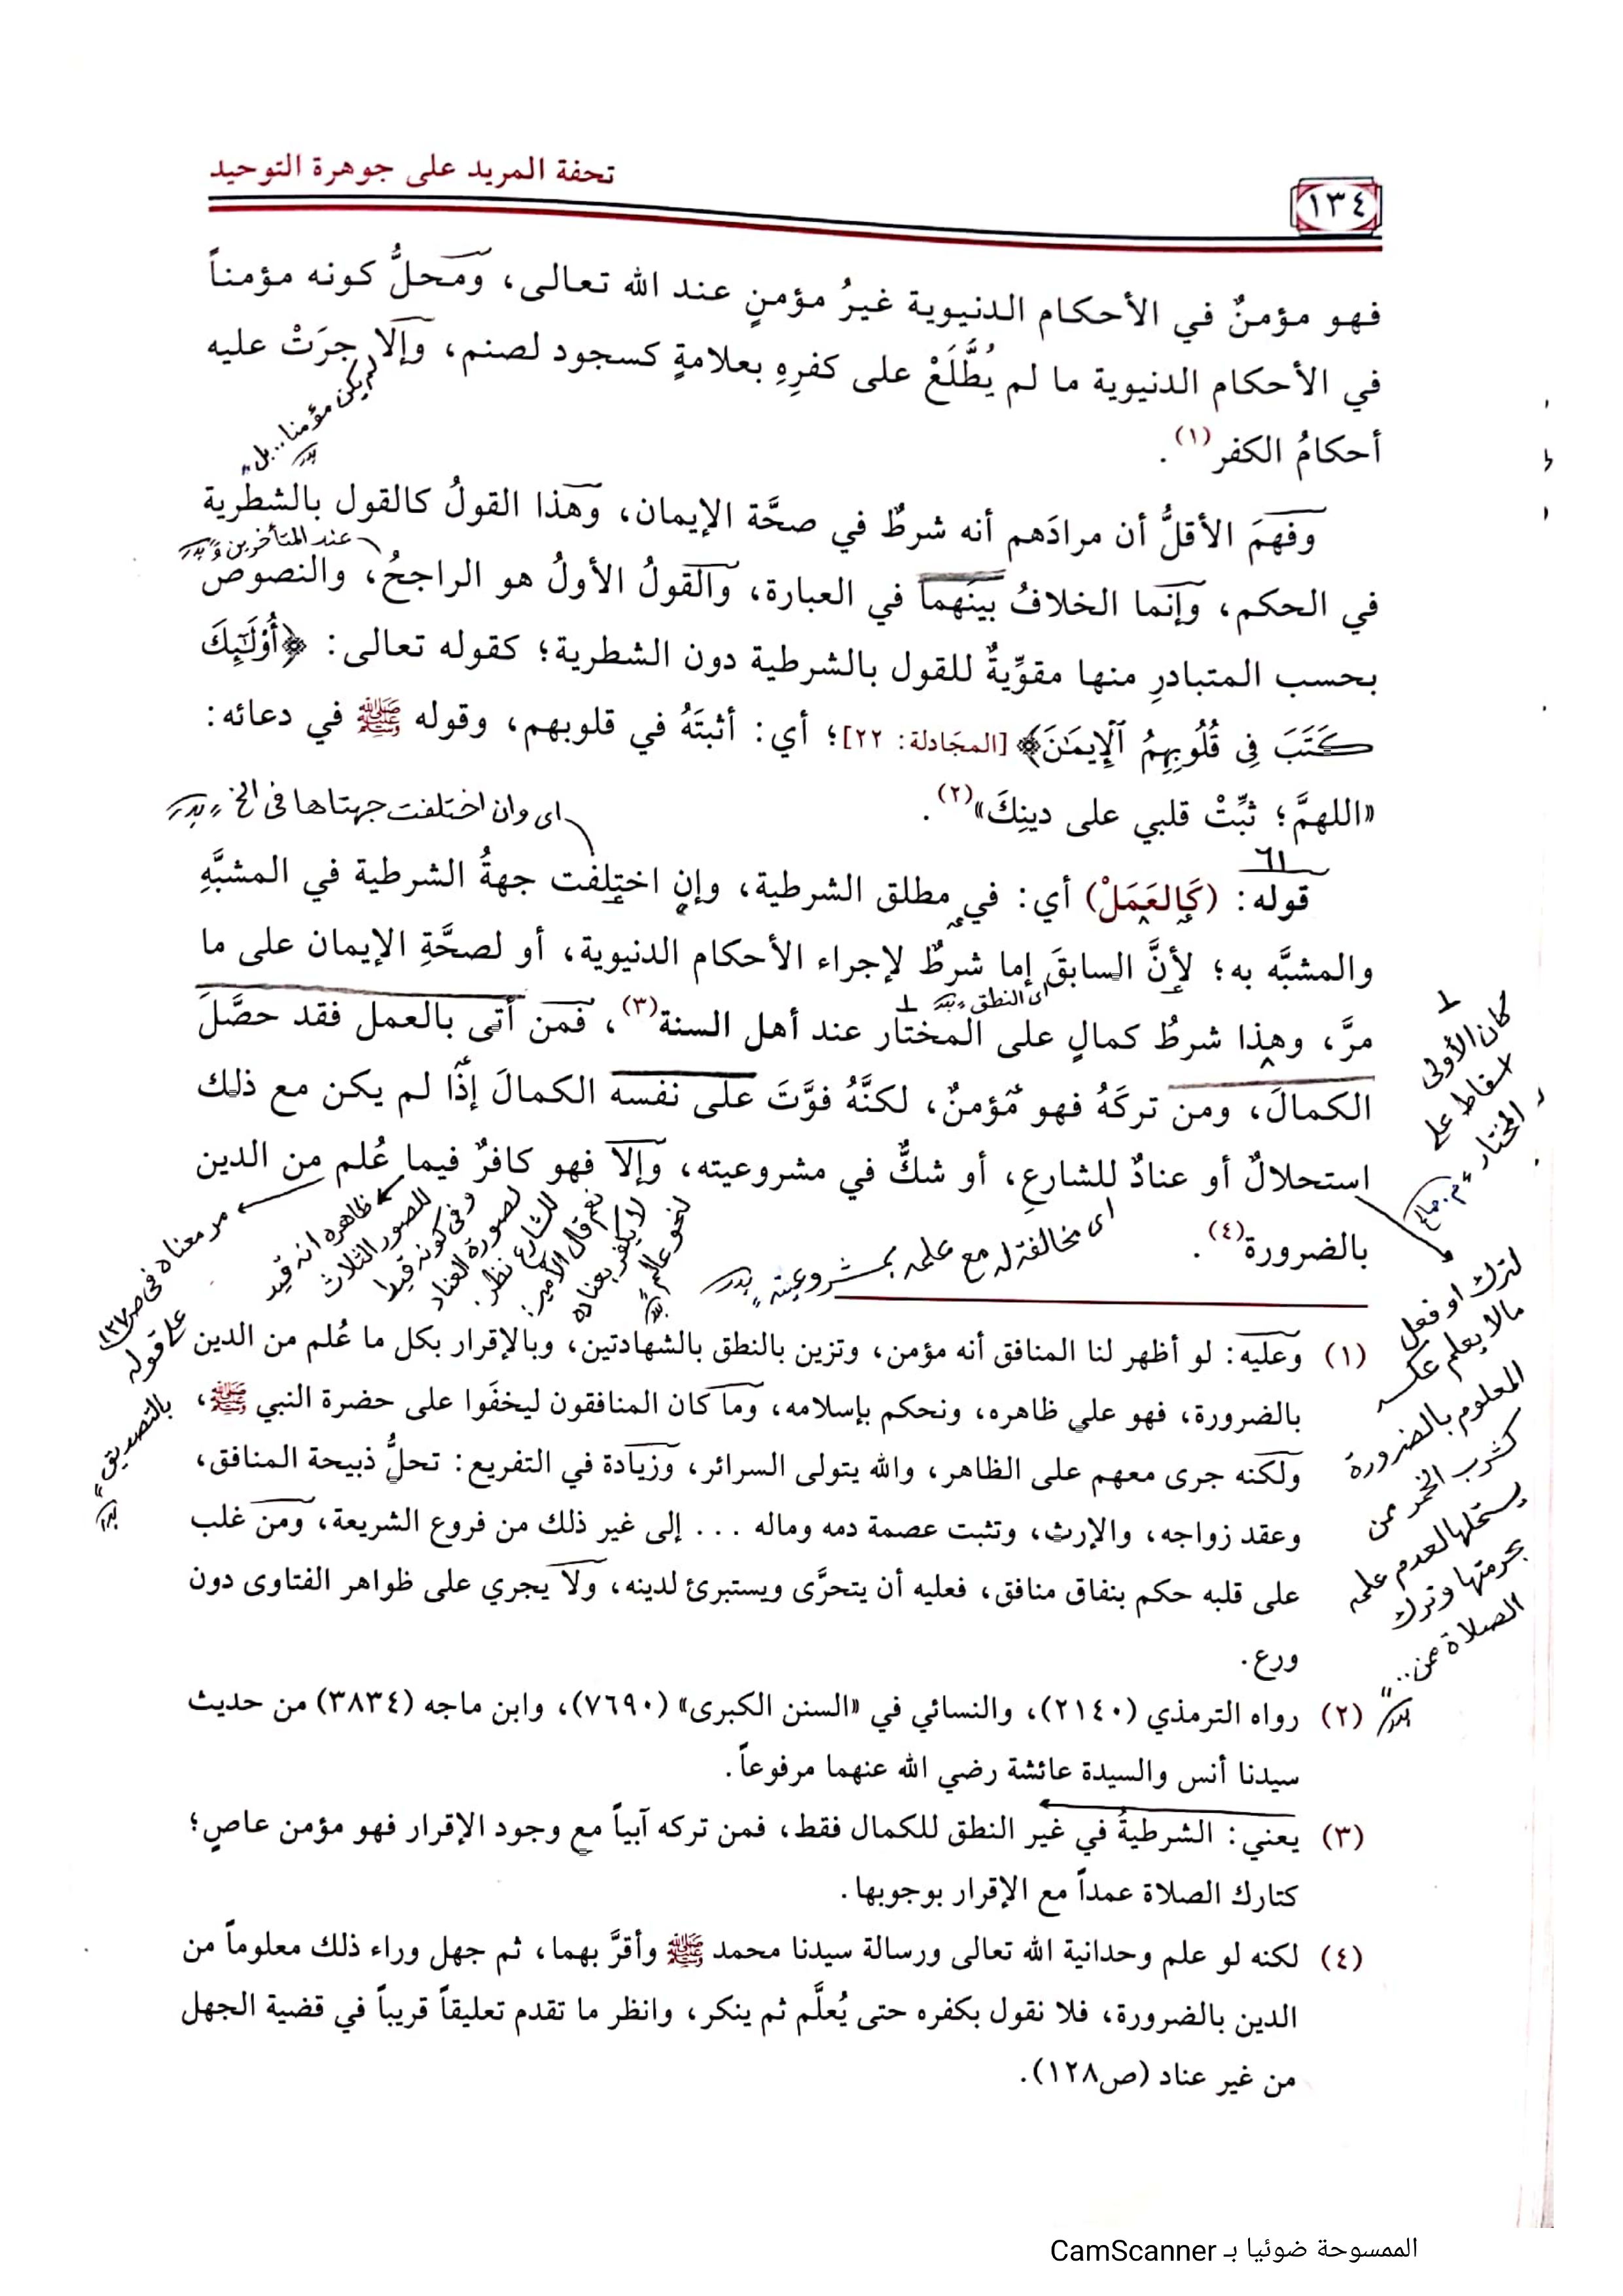 تحفة المريد على جوهرة التوحيد
١٣٤
فهو مؤمنٌ في الأحكام الدنيوية غيرُ مؤمنٍ عند الله تعالى، ومَحلُّ كونه مؤمناً
في الأحكام الدنيوية ما لم يُطَّلَعْ على كفرِهِ بعلامةٍ كسجود لصنم، وإلَّا جرَتْ عليه
لم يكن مؤمنا.. بل
أحكامُ الكفر(١) .
وفَهِمَ الأقلُّ أن مرادَهم أنه شرطٌ في صحَّة الإيمان، وهذا القولُ كالقول بالشطرية
عند المتأخرين
في الحكم، وإنما الخلافُ بينَهما في العبارة، والقولُ الأولُ هو الراجحُ، والنصوصُ
بحسب المتبادرِ منها مقوِّيةٌ للقول بالشرطية دون الشطرية؛ كقوله تعالى: ﴿أُوْلَٰٓئِكَ
كَتَبَ فِي قُلُوبِهِمُ ٱلْإِيمَٰنَ﴾ [المجَادلة: ٢٢]؛ أي: أثبتَهُ في قلوبهم، وقوله ﷺ في دعائه:
«اللهمَّ؛ ثبِّتْ قلبي على دينِكَ»(٢) .
اى وان اختلفت جهتاها فى الخ
٦١
قوله: (كَالعَمَلْ) أي: في مطلق الشرطية، وإنِ اختلفت جهةُ الشرطية في المشبَّهِ
والمشبَّه به؛ لأنَّ السابقَ إما شرطٌ لإجراء الأحكام الدنيوية، أو لصحَّةِ الإيمان على ما
اى النطق
مرَّ، وهذا شرطُ كمالٍ على المختار عند أهل السنة(٣)، فمن أتى بالعمل فقد حصَّلَ
الكمالَ، ومن تركَهُ فهو مؤمنٌ، لكنَّهُ فوَّتَ على نفسه الكمالَ إذا لم يكن مع ذلك
استحلالٌ أو عنادٌ للشارعِ، أو شكٌّ في مشروعيته، وإلَّا فهو كافرٌ فيما عُلم من الدين
بالضرورة(٤) .
كان الأولى
اسقاط على
المختار
اى مخالفة له مع علمه بمشروعيته
لنحو عالم
لا يكفر بعناده
نعم قال الأمير:
للشارع نظر.
لصورة العناد
وفى كونه قيدا
للصور الثلاث
ظاهره انه قيد
مر معناه فى صـ١٢٧
على قوله
بالتصديق
لترك او فعل
مالا يعلم عكسه
المعلوم بالضرورة
كشرب الخمر من
يستحلها لعدم علمه
بحرمتها وترك
الصلاة من..
(١) وعليه: لو أظهر لنا المنافق أنه مؤمن، وتزين بالنطق بالشهادتين، وبالإقرار بكل ما عُلم من الدين
بالضرورة، فهو على ظاهره، ونحكم بإسلامه، وما كان المنافقون ليخفَوا على حضرة النبي ﷺ،
ولكنه جرى معهم على الظاهر، والله يتولى السرائر، وزيادة في التفريع: تحلُّ ذبيحة المنافق،
وعقد زواجه، والإرث، وتثبت عصمة دمه وماله ... إلى غير ذلك من فروع الشريعة، ومن غلب
على قلبه حكم بنفاق منافق، فعليه أن يتحرَّى ويستبرئ لدينه، ولا يجري على ظواهر الفتاوى دون
ورع.
(٢) رواه الترمذي (٢١٤٠)، والنسائي في «السنن الكبرى» (٧٦٩٠)، وابن ماجه (٣٨٣٤) من حديث
سيدنا أنس والسيدة عائشة رضي الله عنهما مرفوعاً.
(٣) يعني: الشرطيةُ في غير النطق للكمال فقط، فمن تركه آبياً مع وجود الإقرار فهو مؤمن عاصٍ؛
كتارك الصلاة عمداً مع الإقرار بوجوبها.
(٤) لكنه لو علم وحدانية الله تعالى ورسالة سيدنا محمد ﷺ وأقرَّ بهما، ثم جهل وراء ذلك معلوماً من
الدين بالضرورة، فلا نقول بكفره حتى يُعلَّم ثم ينكر، وانظر ما تقدم تعليقاً قريباً في قضية الجهل
من غير عناد (ص١٢٨).
الممسوحة ضوئيا بـ CamScanner